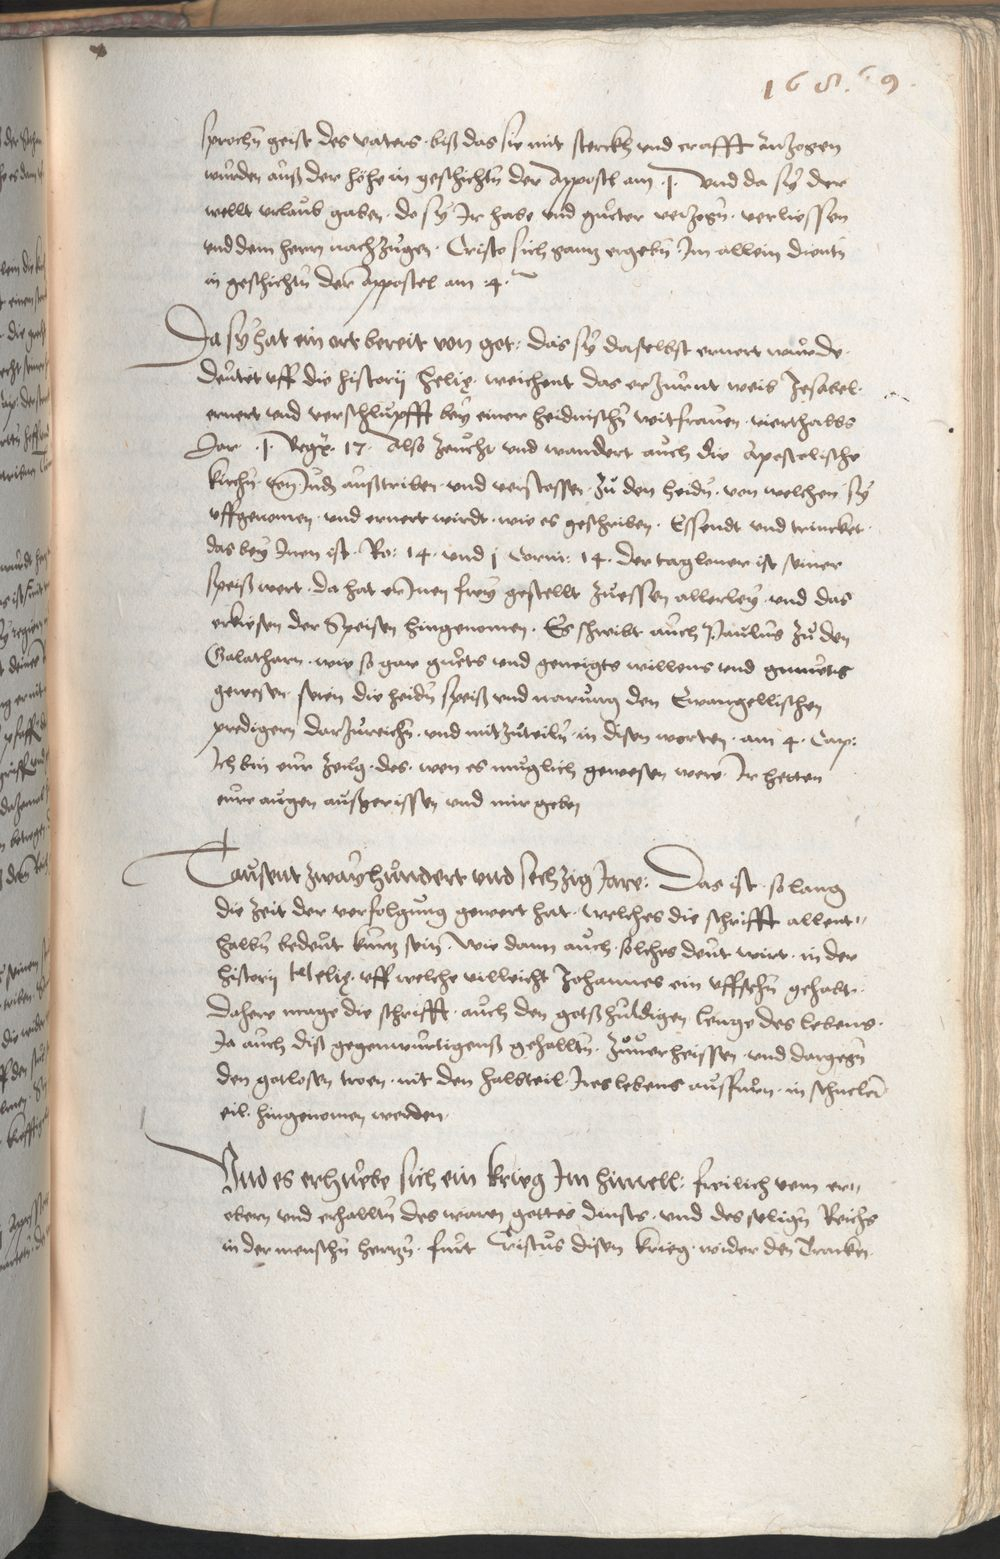 168. 69.
sprochn geist des vaters · biß das sie mit sterckh und crafft anzogen
wurden auß der höhe in geschichtn der Appostl am · 1 · und da sy der
wellt urlaub gaben · do sy Ir habe und guetter verzogn · verliessen
und dem herrn nachzugen · Cristo sich gantz ergebn · Im allein dientn
in geschichtn der Appostel am · 4 ·
Da sy hat ein ort bereit von got : das sy daselbst ernert wurde ·
deutet uff die historij Helie · weichent das erzurnt weib Jesabel ·
ernert und verschlupfft bey einer heidnischn witfrauen · vierthalbs
Jar · 1 · Reg · 17 · Also zeucht und wandert auch die Apostolische
kirchn · von Judn außtriben · und verstossen · zu den heidn · von welchen sy
uffgenomen · und ernert wirdt · wie es geschriben · Essendt und trincket ·
das bey Inen ist · Ro : 14 · und 1 Corin : 14 · der taglener ist seiner
speiß wert · da hat er Inen frey gestellt zuessen allerley · und das
erkiesen der Speisen hingenomen · Es schreibt auch Paulus zu den
Galathern · wie so gar guets und geneigts willens und gmuets
gewesen seien die heidn speiß und narung den Ewangellischen
predigern darzureichn · und mitzuteiln · in disen worten · am 4 · Cap :
Ich bin eur zeug · des · wen es muglich gewesen were Ir hetten
eure augen außgerissen und mir geben
Tausent zwayhundert und sechzig Jare : Das ist · so lang
die zeit der verfolgung gewert hat · welches die schrifft allent„
halbn bedeut kurtz sein · Wie dann auch · solches deut wirt · in der
historij Helie · uff welche villeicht Johannes ein uffsehn gehabt ·
Dahere mage die schrifft · auch den gotßhuldigen lenge des lebens ·
Ja auch diß gegenwurtigenß gehalltn · zuuerheissen · und dargegn
den gotlosen troen · mit den halbteil Ires lebens auffurn · in schneler
eil · hingenomen werden ·
Und es erhuebe sich ein krieg Im himell : freilich vom er„
obern und erhalltn des waren gottes dinsts · und des selign Reichs
in der menschn hertzn · furt Cristus disen krieg · wider den Tracken